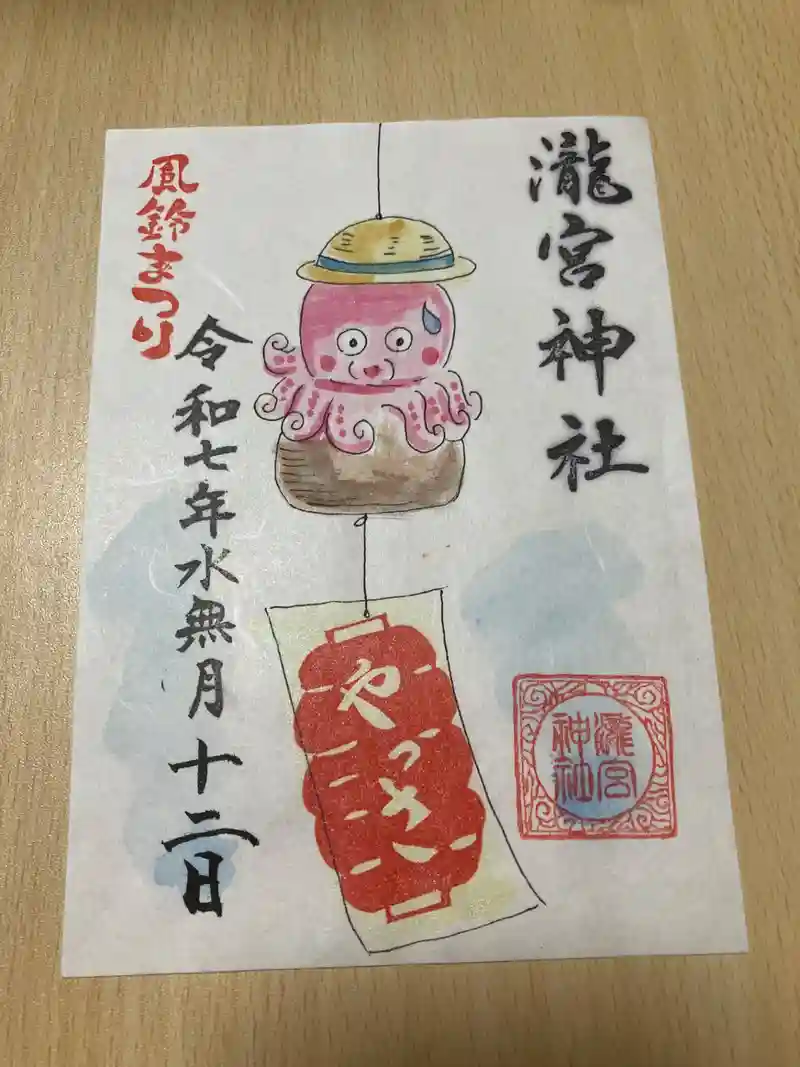 瀧宮神社
風鈴まつり
令和七年水無月十二日
やっさ
瀧宮
神社